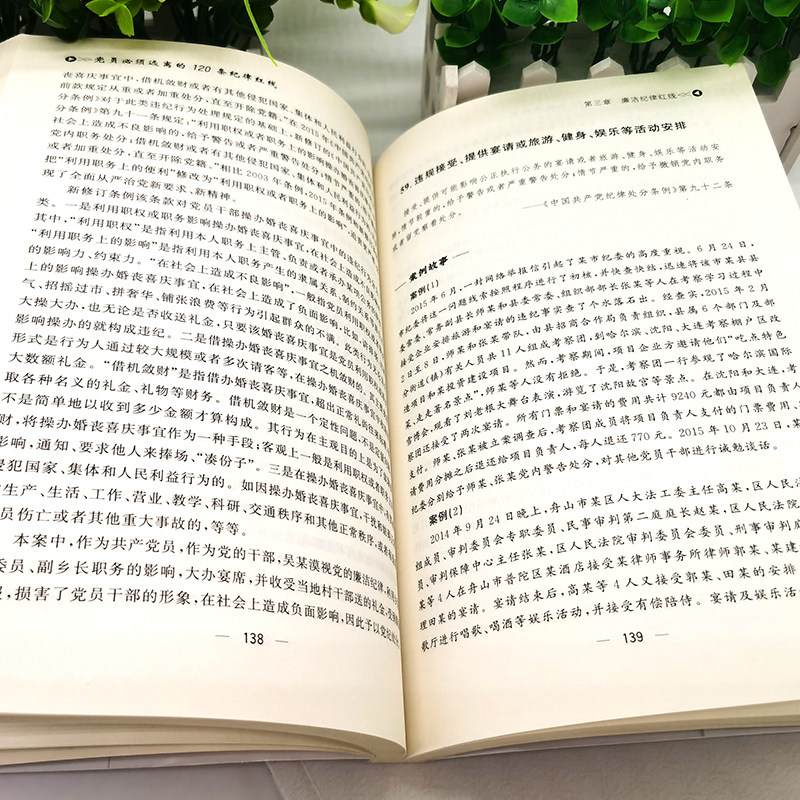 党员必须远离的 120 条纪律红线
丧喜庆事宜中，借机敛财或者有其他侵犯国家、集体和人民利
前款规定从重或者加重处分，直至开除党籍。”在2015年《中
分条例》对于此类违纪行为处理规定的基础上，新修订的《
分条例》第九十一条规定，“利用职权或者职务上的影响操办
社会上造成不良影响的，给予警告或者严重警告处分；情节
党内职务处分；借机敛财或者有其他侵犯国家、集体和人民
或者加重处分，直至开除党籍。”相比2003年条例，2015年条例
把“利用职务上的便利”修改为“利用职权或者职务上的影响”，
现了全面从严治党新要求、新精神。
新修订条例该条款对党员干部操办婚丧喜庆事宜中的违纪行为
类。一是利用职权或职务影响操办婚丧喜庆事宜，在社会上造成
其中，“利用职权”是指利用本人职务上主管、负责或者承办某项公
“利用职务上的影响”是指利用本人职务产生的隶属关系、制约关系
的影响力、约束力。“在社会上造成不良影响”，一般指党员利用职
上的影响操办婚丧喜庆事宜，在社会上造成了负面影响，比如，
气、招摇过市、拼奢华、铺张浪费等行为引起群众的不满。此类行
大操大办，也无论是否收送礼金，只要该婚丧喜庆事宜是党员利用职
影响操办的就构成违纪。二是借操办婚丧喜庆事宜之机敛财的。
形式是行为人通过较大规模或者多次请客等，在操办婚丧喜庆事宜
大数额礼金。“借机敛财”是指借操办婚丧喜庆事宜，超出正常礼
取各种名义的礼金、礼物等财务。借机敛财是一个定性问题，不是
不是简单地以收到多少金额才算构成。其行为在主观目的上是为了
财，将操办婚丧喜庆事宜作为一种手段；客观上一般是利用职权或
影响，通知、要求他人来捧场、“凑份子”。三是在操办婚丧喜庆
侵犯国家、集体和人民利益行为的。如因操办婚丧喜庆事宜，干扰
生产、生活、工作、营业、教学、科研、交通秩序和其他正常秩序，或
员伤亡或者其他重大事故的，等等。
本案中，作为共产党员，作为党的干部，吴某漠视党的廉洁纪律，利
委员、副乡长职务的影响，大办宴席，并收受当地村干部送的礼金，
损害了党员干部的形象，在社会上造成负面影响，因此予以党纪
138
第三章 廉洁纪律红线
59. 违规接受、提供宴请或旅游、健身、娱乐等活动安排
接受、提供可能影响公正执行公务的宴请或者旅游、健身、娱乐等活动安
排，情节较重的，给予警告或者严重警告处分；情节严重的，给予撤销党内职务
或者留党察看处分。
——《中国共产党纪律处分条例》第九十二条
案例故事
案例(1)
2015年6月，一封网络举报信引起了某市纪委的高度重视。6月24日，
市纪委将这一问题线索按照程序进行了初核，并快查快结，迅速将该市某县县
委常委、常务副县长师某和县委常委、组织部部长张某等人在考察学习过程中
接受企业安排旅游和宴请的违纪事实查了个水落石出。经查实，2015年2月
2日至8日，师某和张某带队，由县招商合作局负责组织，县属6个部门及部
分街道(镇)有关人员共11人组成考察团，到哈尔滨、沈阳、大连考察棚户区改
造项目和某投资建设项目。然而，考察期间，项目企业方邀请他们“吃点特色
菜、走走著名景点”，师某等人没有拒绝。于是，考察团一行参观了哈尔滨国际
会博会，观看了刘老根大舞台表演，游览了沈阳故宫等景点。在沈阳和大连，考
察团还接受了两次宴请。所有门票和宴请的费用共计9240元都由项目负责人
支付。师某、张某被立案调查后，考察团成员将项目负责人支付的门票费用、宴
请费用分摊之后退还给项目负责人，每人退还770元。2015年10月23日，某
纪委分别给予师某、张某党内警告处分，对其他党员干部进行诫勉谈话。
案例(2)
2014年9月24日晚上，舟山市某区人大法工委主任高某，区人民法
组成员、审判委员会专职委员、民事审判第二庭庭长赵某，区人民法院
员、审判保障中心主任张某，区人民法院审判委员会委员、刑事审判庭
等4人在舟山市普陀区某酒店接受某律师事务所律师郭某、某建
理田某的宴请。宴请结束后，高某等4人又接受郭某、田某的安排
歌厅进行唱歌、喝酒等娱乐活动，并接受有偿陪侍。宴请及娱乐活
139